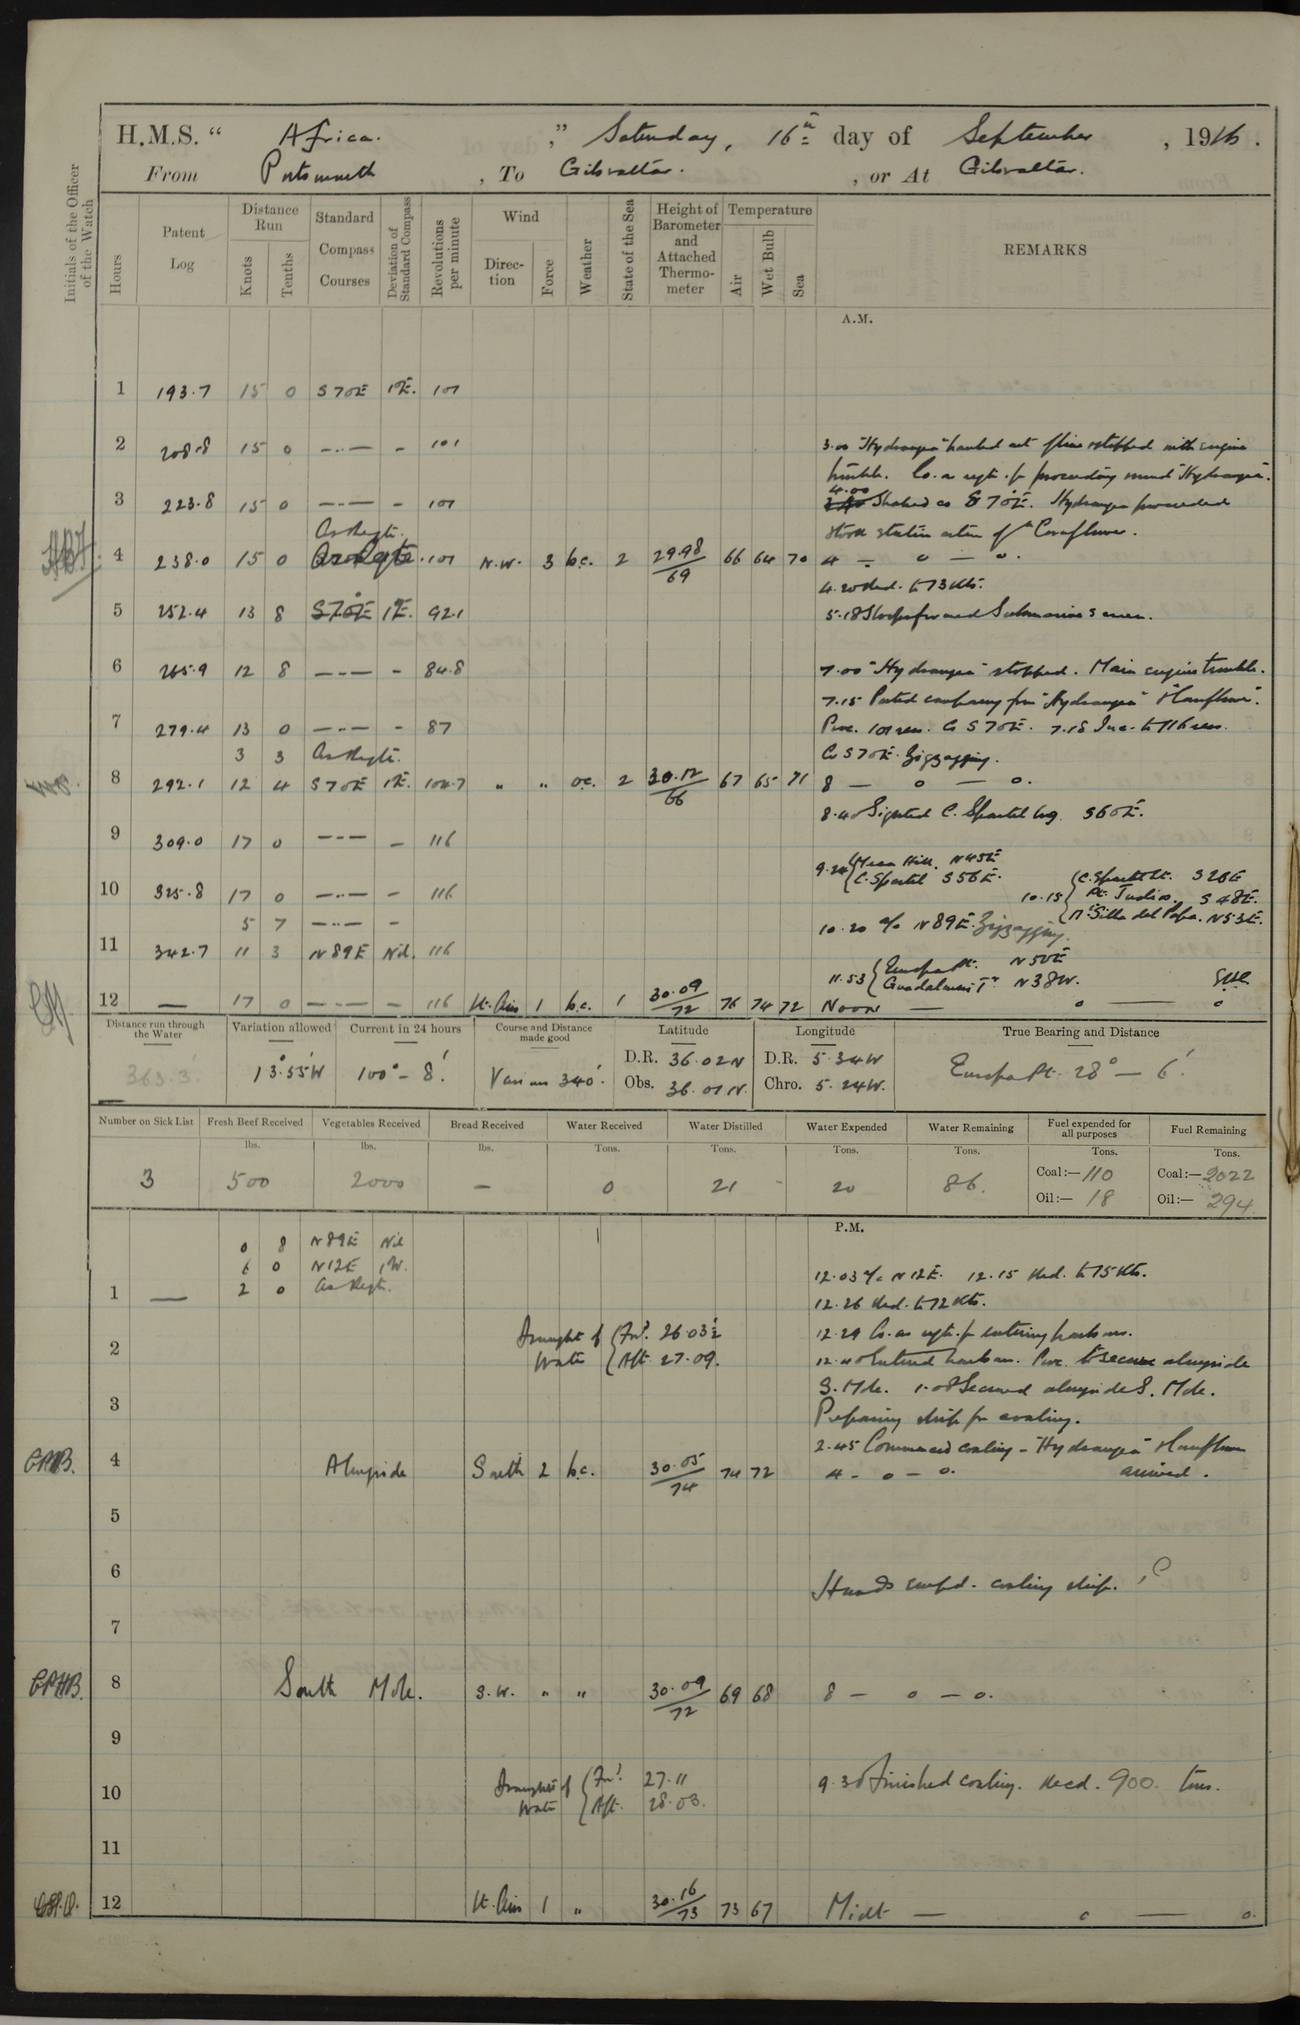 H.M.S. “ Africa. ,” Saturday, 16th day of September , 1916 .
From Portsmouth , To Gibraltar. , or At Gibraltar.
Initials of the Officer of the Watch
Hours
Patent Log
Distance Run
Knots
Tenths
Standard Compass Courses
Deviation of Standard Compass
Revolutions per minute
Wind
Direc-tion
Force
Weather
State of the Sea
Height of Barometer and Attached Thermo-meter
Temperature
Air
Wet Bulb
Sea
REMARKS
A.M.
1 193.7 15 0 S70E 1°E. 101
2 208.8 15 0 —..— - 101
3.00 "Hydrangea" hauled out of line & stopped with engine
trouble. Co. as reqte. for proceeding round "Hydrangea".
3 223.8 15 0 —..— - 101
4.00 Shaped co S70°E. Hydrangea proceeded
As Reqte.
& took station astern of
4 238.0 15 0 101 N.W. 3 b.c. 2 29.98/69 66 64 70 4 — o — o.
4.20 Red. to 13 Kts.
5 252.4 13 8 S70°E 1°E. 92.1
5.18
6 265.9 12 8 —..— - 84.8
7.00 "Hydrangea" stopped. Main engine trouble.
7.15 Parted company from "Hydrangea"
7 279.4 13 0 —..— - 87
Proc. 101 revs. Co S70E. 7.18 Inc. to 116 revs.
3 3 As Reqte.
Co S70E. Zigzagging.
8 292.1 12 4 S70E 1°E. 104.7 " " o.c. 2 30.12/66 67 65 71 8 — o — o.
8.40 Sighted C. Spartel bg. S60E.
9 309.0 17 0 —..— - 116
9.24 { N45E
C. Spartel S56E.
10 325.8 17 0 —..— - 116
10.15 { C. Spartel Lt. S28E
S48E.
Silla del Papa. N53E.
5 7 —..— -
10.20 a/c N89E. Zigzagging.
11 342.7 11 3 N89E Nil. 116
11.53 { Europa Pt. N50E
N38W.
12 — 17 0 —..— - 116 Lt. Airs 1 b.c. 1 30.09/72 76 74 72 Noon — o — o
Distance run through the Water
363.3
Variation allowed
13°.55'W
Current in 24 hours
100° - 8'.
Course and Distance made good
Various 340'.
Latitude
D.R. 36.02N
Obs. 36.01N.
Longitude
D.R. 5.34W
Chro. 5.24W.
True Bearing and Distance
Europa Pt. 28° — 6'.
Number on Sick List
3
Fresh Beef Received
lbs.
500
Vegetables Received
lbs.
2000
Bread Received
lbs.
-
Water Received
Tons.
0
Water Distilled
Tons.
21
Water Expended
Tons.
20
Water Remaining
Tons.
86.
Fuel expended for all purposes
Tons.
Coal:— 110
Oil:— 18
Fuel Remaining
Tons.
Coal:— 2022
Oil:— 294
P.M.
0 8 N89E Nil
6 0 N12E 1°W.
12.03 a/c N12E. 12.15 Red. to 15 Kts.
1 — 2 0 As Reqte.
12.26 Red. to 12 Kts.
12.29 Co. as reqte. for entering harbour.
2 Draught of Water { For'd. 26.03½
Aft. 27.09.
12.40 Entered harbour. Proc. to secure alongside
S. Mole. 1.08 Secured alongside S. Mole.
3
Preparing ship for coaling.
2.45 Commenced coaling - "Hydrangea"
arrived.
4 Alongside South 2 b.c. 30.05/74 74 72 4 - o - o.
5
6
Hands empd. coaling ship.
7
8 South Mole. S.W. " " 30.09/72 69 68 8 — o — o.
9
10 Draught of Water { For'd. 27.11
Aft. 28.03.
9.30 Finished coaling. Recd. 900 tons.
11
12 Lt. Airs 1 " 30.16/73 73 67 Midt — o — o.